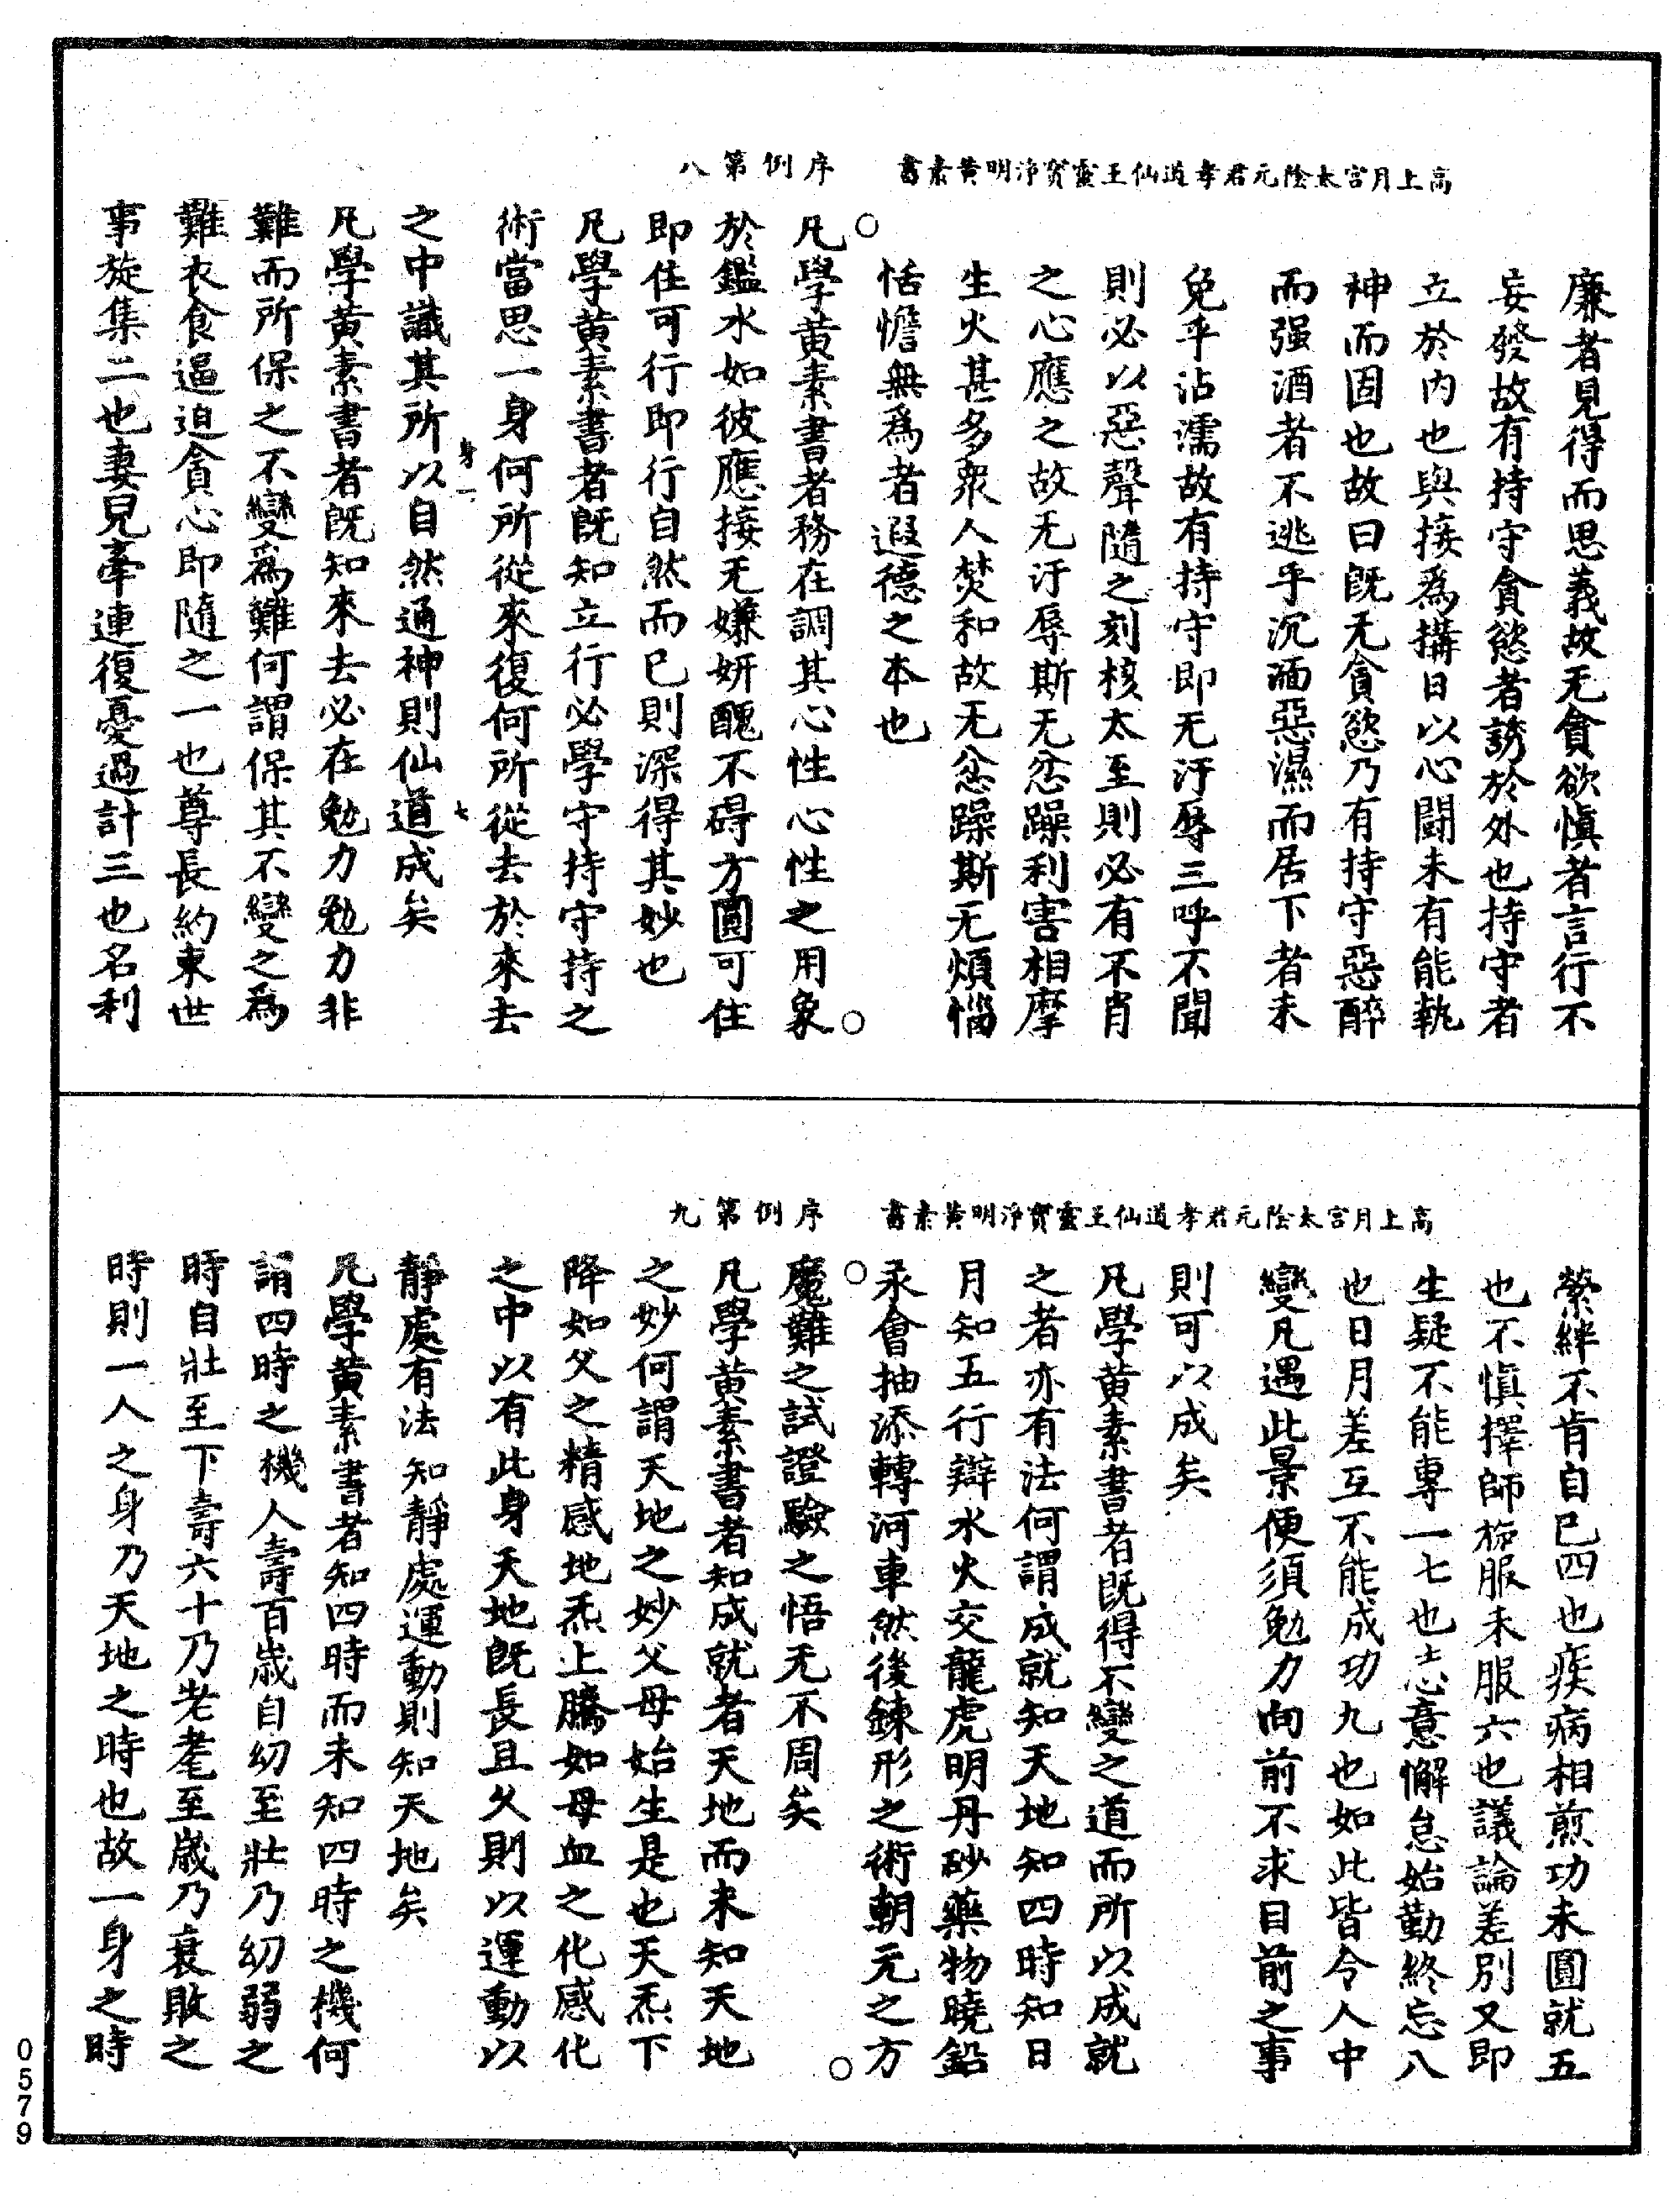 高上月宮太陰元君孝道仙王靈寶淨明黃素書　序例第八
廉者見得而思義故无貪欲慎者言行不
妄發故有持守貪慾者誘於外也持守者
立於內也與接為搆日以心鬬未有能執
神而固也故曰旣无貪慾乃有持守惡醉
而强酒者不逃乎沉湎惡濕而居下者未
免乎沾濡故有持守即无汙辱三呼不聞
則必以惡聲隨之刻核太至則必有不肖
之心應之故无汙辱斯无忿躁利害相摩
生火甚多衆人焚和故无忿躁斯无煩惱
恬憺無為者遐德之本也
凡學黃素書者務在調其心性心性之用象
於鑑水如彼應接无嫌妍醜不碍方圓可住
即住可行即行自然而已則深得其妙也
凡學黃素書者旣知立行必學守持守持之
術當思一身何所從來復何所從去於來去
之中識其所以自然通神則仙道成矣
凡學黃素書者旣知來去必在勉力勉力非
難而所保之不變爲難何謂保其不變之爲
難衣食逼迫貪心即隨之一也尊長約束世
事旋集二也妻兒牽連復憂過計三也名利
高上月宮太陰元君孝道仙王靈寶淨明黃素書　序例第九
縈絆不肯自已四也疾病相煎功未圓就五
也不慎擇師旋服未服六也議論差別又即
生疑不能專一七也志意懈怠始勤終忘八
也日月差互不能成功九也如此皆令人中
變凡遇此景便須勉力向前不求目前之事
則可以成矣
凡學黃素書者旣得不變之道而所以成就
之者亦有法何謂成就知天地知四時知日
月知五行辯水火交龍虎明丹砂藥物曉鉛
汞會抽添轉河車然後鍊形之術朝元之方
魔難之試證驗之悟无不周矣
凡學黃素書者知成就者天地而未知天地
之妙何謂天地之妙父母始生是也天炁下
降如父之精感地炁上騰如母血之化感化
之中以有此身天地旣長且久則以運動以
靜處有法知靜處運動則知天地矣
凡學黃素書者知四時而未知四時之機何
謂四時之機人壽百歲自幼至壯乃幼弱之
時自壯至下壽六十乃老耄至歲乃衰敗之
時則一人之身乃天地之時也故一身之時
身一
七
0579